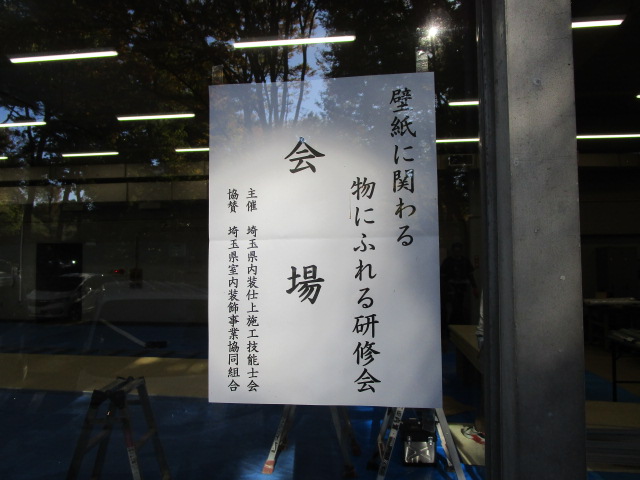 壁紙に関わる
物にふれる研修会
会場
主催 埼玉県内装仕上施工技能士会
協賛 埼玉県室内装飾事業協同組合